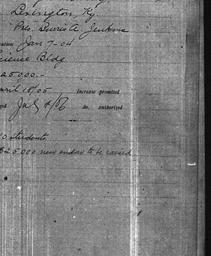 Lexington, Ky.
Pres. Burris A. Jenkins
Jan 7-04
Science Bldg
25000.-
April 18/05 Increase promised
July 4/06 do. authorized
students
$25,000 new endow to be raised